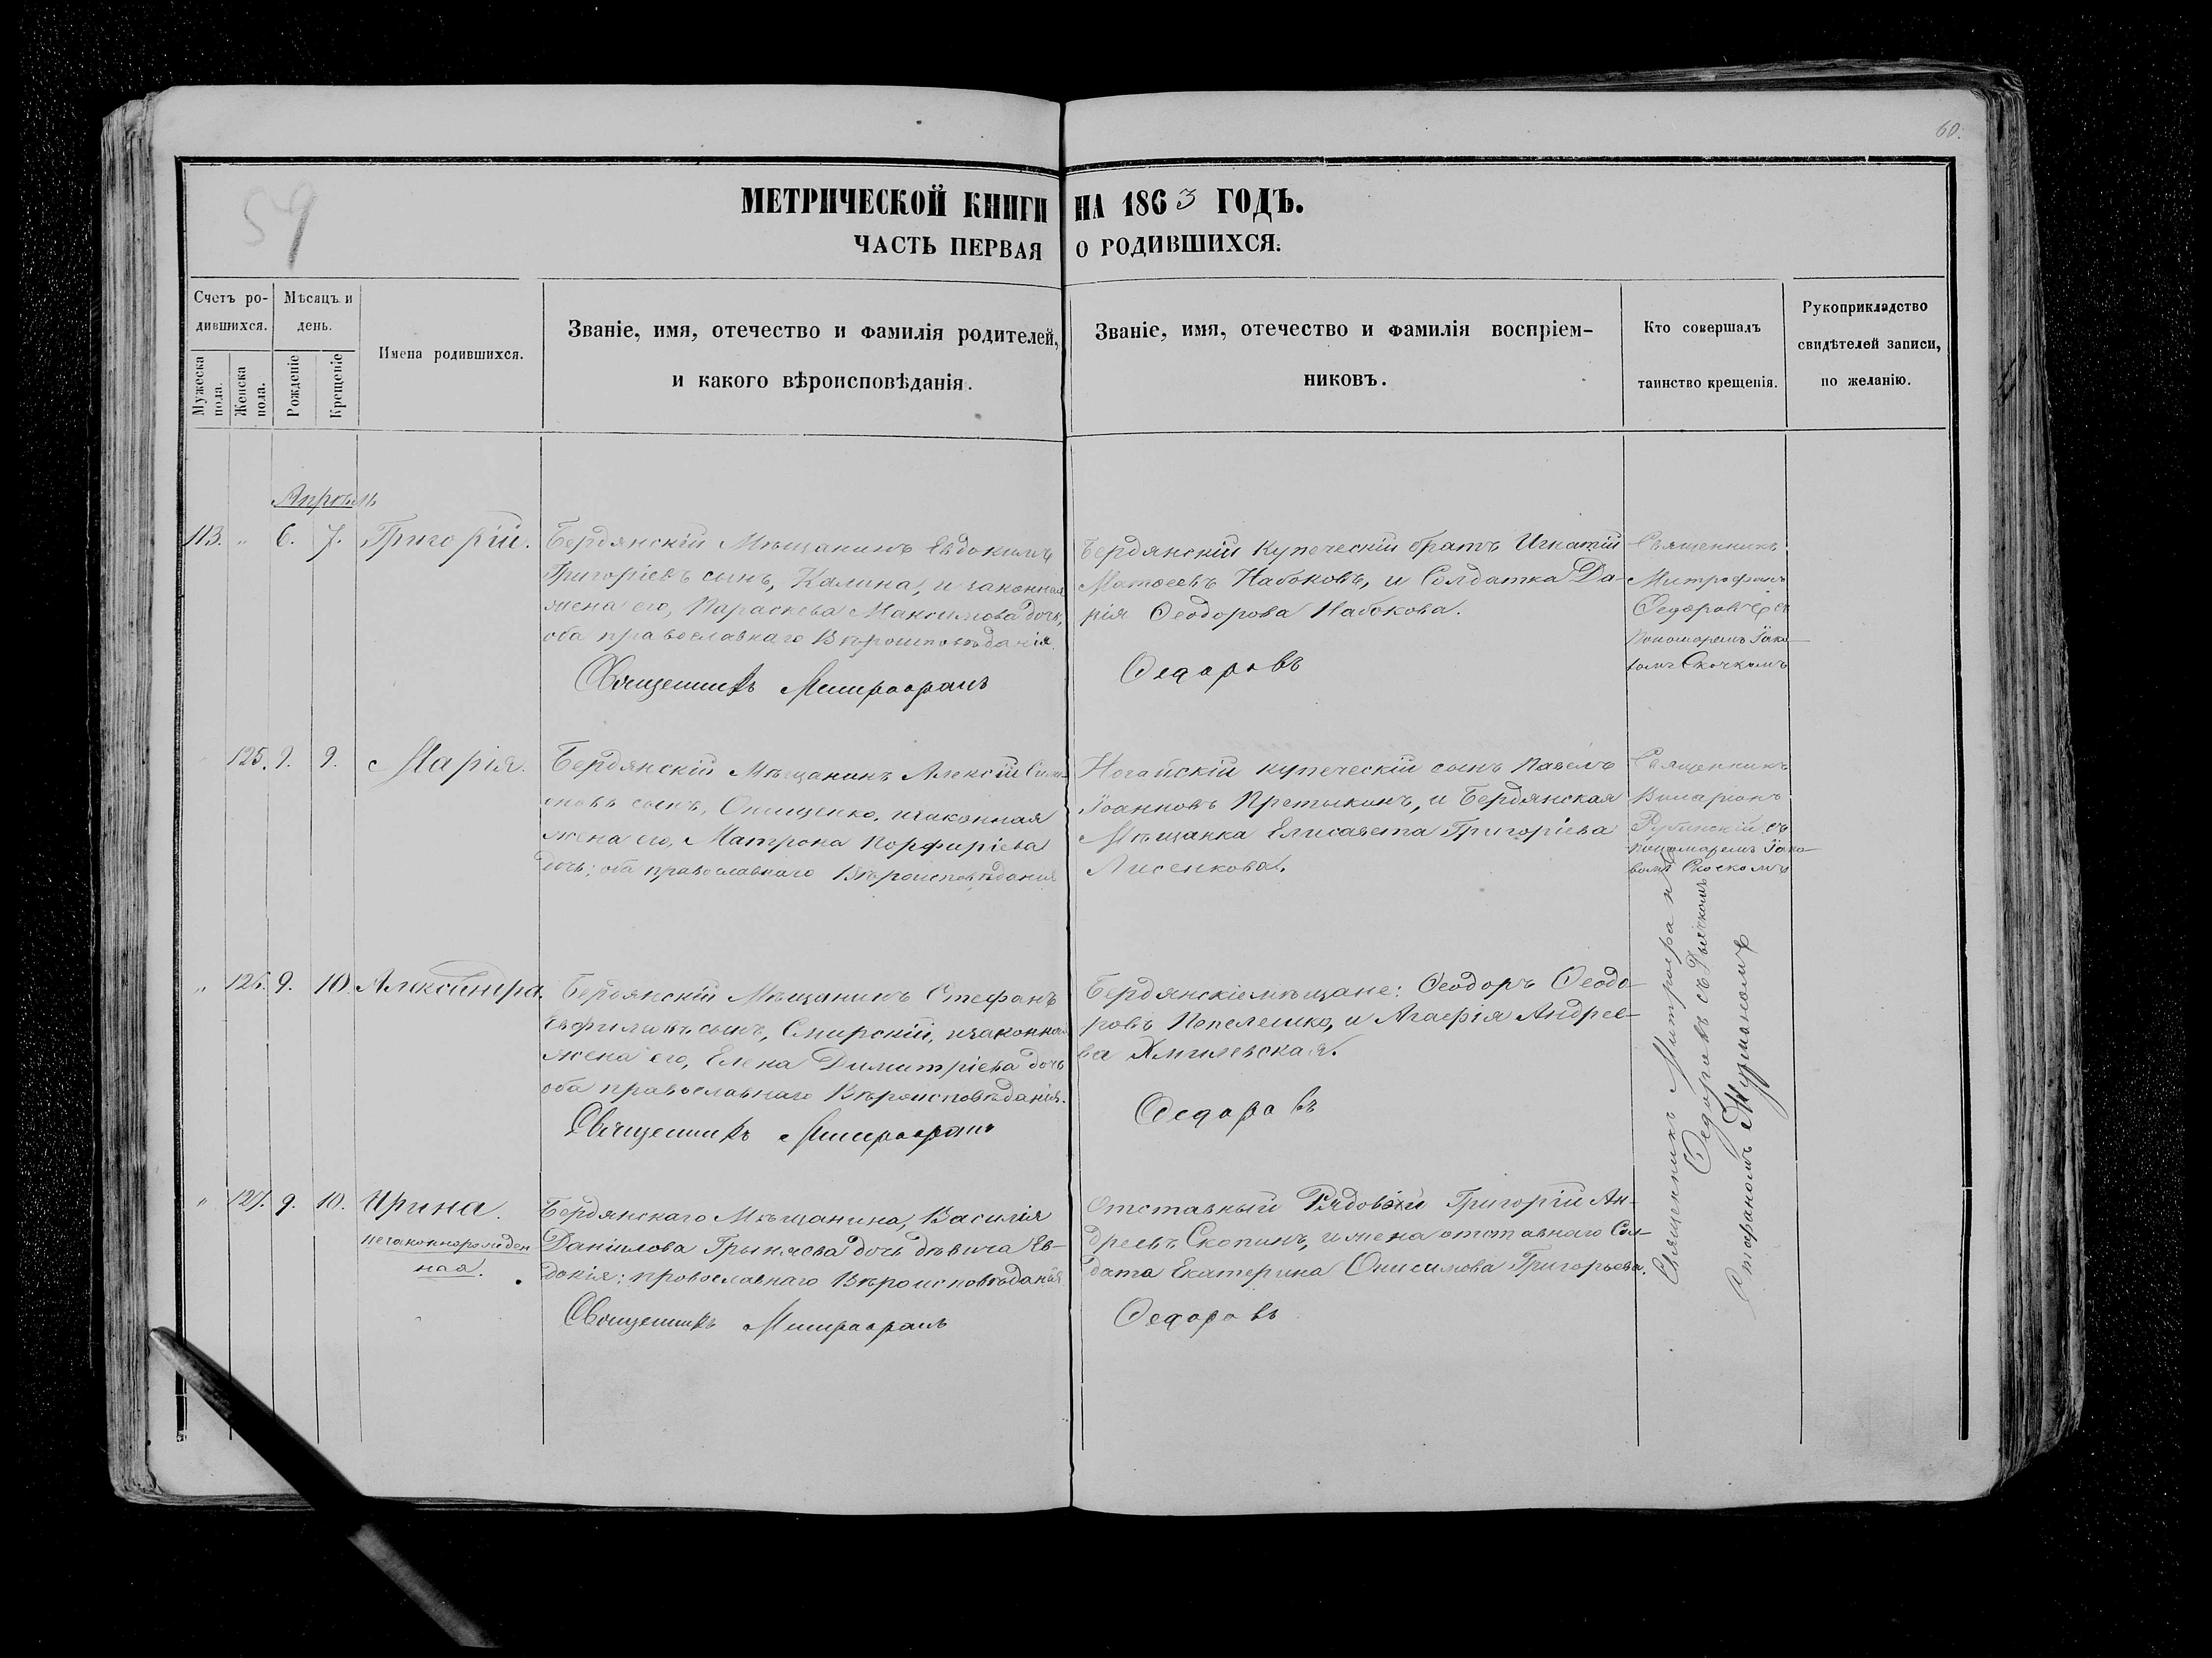 60.
59
МЕТРИЧЕСКОЙ КНИГИ НА 1863 ГОДЪ.
ЧАСТЬ ПЕРВАЯ О РОДИВШИХСЯ.
Счетъ ро-
дившихся.
Мужеска пола.
Женска пола.
Мѣсяцъ и
день.
Рожденіе
Крещеніе
Имена родившихся.
Званіе, имя, отечество и фамилія родителей,
и какого вѣроисповѣданія.
Званіе, имя, отечество и фамилія воспріем-
никовъ.
Кто совершалъ
таинство крещенія.
Рукоприкладство
свидѣтелей записи,
по желанію.
Апрѣль
113. " 6. 7. Григорій.
Бердянскій Мѣщанинъ Евдокимъ
Григоріевъ сынъ, Калина, и законная
жена его, Параскева Максимова дочь,
оба православнаго Вѣроисповѣданія.
Священникъ Митрофанъ
Бердянскій Купеческій братъ Игнатій
Матѳеевъ Набоковъ, и Солдатка Да-
рія Ѳеодорова Набокова.
Ѳедоровъ
Священникъ
Митрофанъ
Ѳедоровъ съ
Пономаремъ Іако-
вомъ
125. 9. 9. Марія.
Бердянскій Мѣщанинъ Алексій
сынъ, Онищенко, и законная
жена его, Матрона Порфиріева
дочь; оба православнаго Вѣроисповѣданія
Ногайскій купеческій сынъ Павелъ
Іоанновъ Претыкинъ, и Бердянская
Мѣщанка Елисавета Григоріева
Лисенкова.
Священникъ
Иларіонъ
съ
пономаремъ Іако-
вомъ
" 126. 9. 10. Александра.
Бердянскій Мѣщанинъ Стефанъ
сынъ, Смирскій, и законная
жена его, Елена Димитріева дочь
оба православнаго Вѣроисповѣданія.
Священникъ Митрофанъ
Бердянскіе мѣщане: Ѳеодоръ Ѳеодо-
ровъ Попелешко, и Агаѳія Андрее-
ва Хмилевская.
Ѳедоровъ
Священникъ Митрофанъ
Ѳедоровъ съ Дьячкомъ
Стефаномъ
" 127. 9. 10. Ирина.
незаконнорожден
ная.
Бердянскаго Мѣщанина, Василія
Даніилова дочь дѣвица Ев-
докія; православнаго Вѣроисповѣданія
Священникъ Митрофанъ
Отставный Рядовой Григорій Ан-
дреевъ Скопинъ, и жена отставнаго Сол-
дата Екатерина Онисимова Григорьева.
Ѳедоровъ